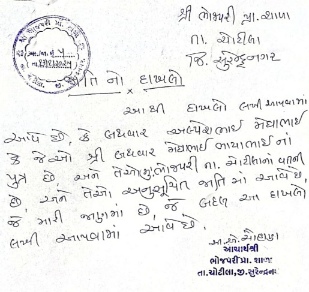 શ્રી ભોજપરી પ્રા. શાળા
તા. ચોટીલા
જિ. સુરેન્દ્રનગર
જાતિ નો દાખલો
આ થી દાખલો લખી આપવામાં
આવે છે, કે લધવાર અલ્પેશભાઈ મેઘાભાઈ
કે જેઓ શ્રી લધવાર મેઘાભાઈ ભાયાભાઈ નાં
પુત્ર છે અને તેઓ ભોજપરી તા. ચોટીલાનાં વતની
છે, અને તેઓ અનુસૂચિત જાતિ માં આવે છે,
જે મારી જાણમાં છે, જે બદલ આ દાખલો
લખી આપવામાં આવે છે.
આચાર્યશ્રી
ભોજપરી પ્રા. શાળા
તા. ચોટીલા, જી. સુરેન્દ્રન